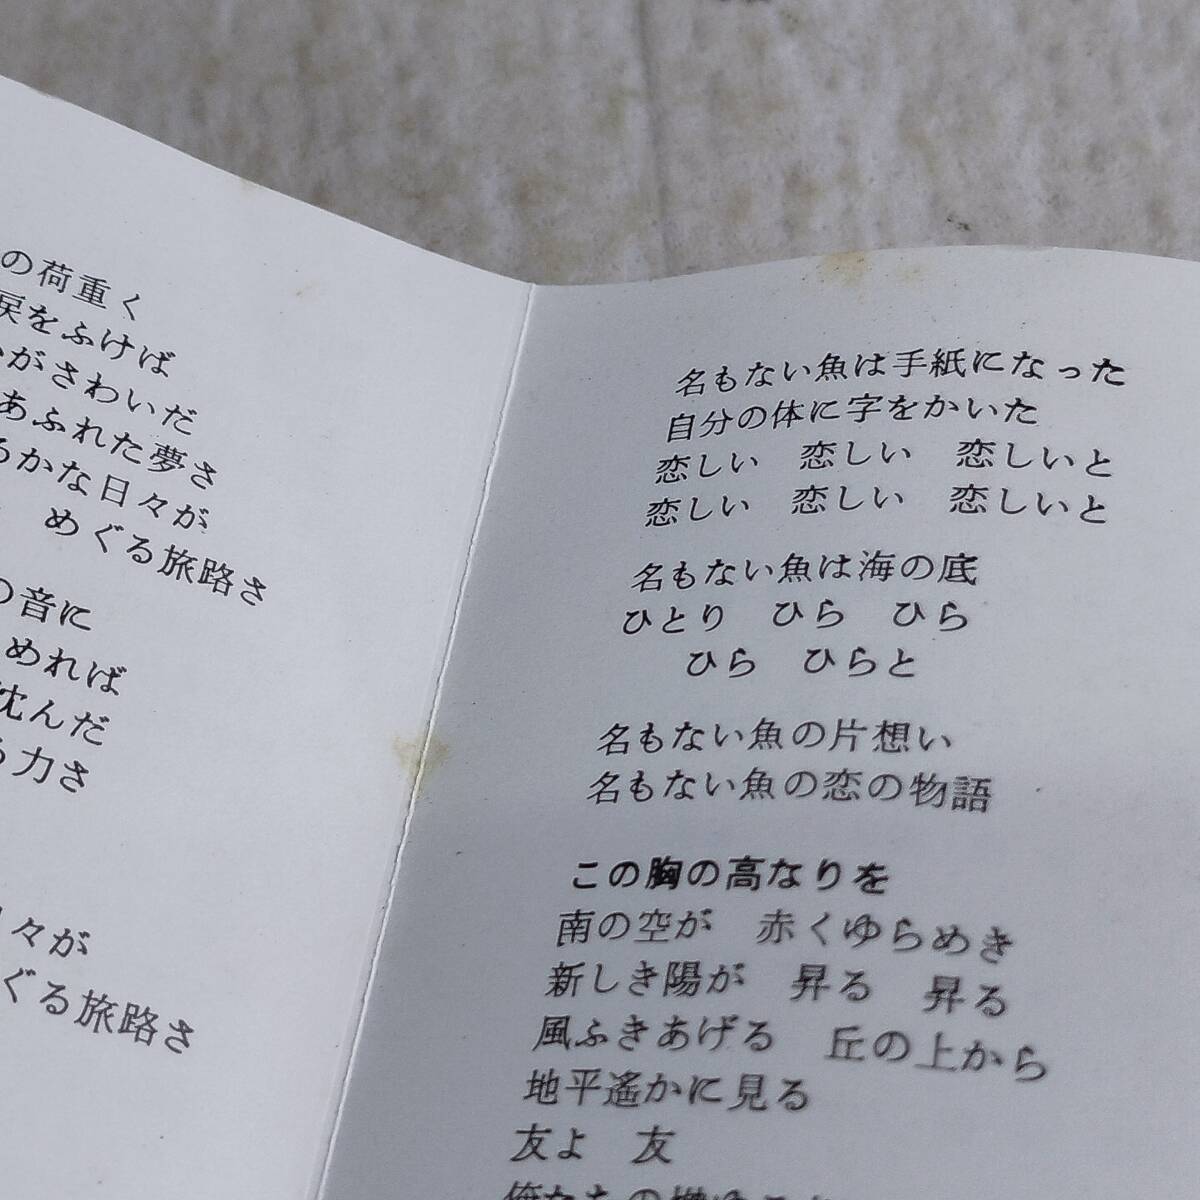 の荷重く
戻をふけば
がさわいだ
あふれた夢さ
るかな日々が
めぐる旅路さ
の音に
めれば
沈んだ
る力さ
々が
ぐる旅路さ
名もない魚は手紙になった
自分の体に字をかいた
恋しい　恋しい　恋しいと
恋しい　恋しい　恋しいと
名もない魚は海の底
ひとり　ひら　ひら
ひら　ひらと
名もない魚の片想い
名もない魚の恋の物語
この胸の高なりを
南の空が　赤くゆらめき
新しき陽が　昇る　昇る
風ふきあげる　丘の上から
地平遙かに見る
友よ　友
俺たちの